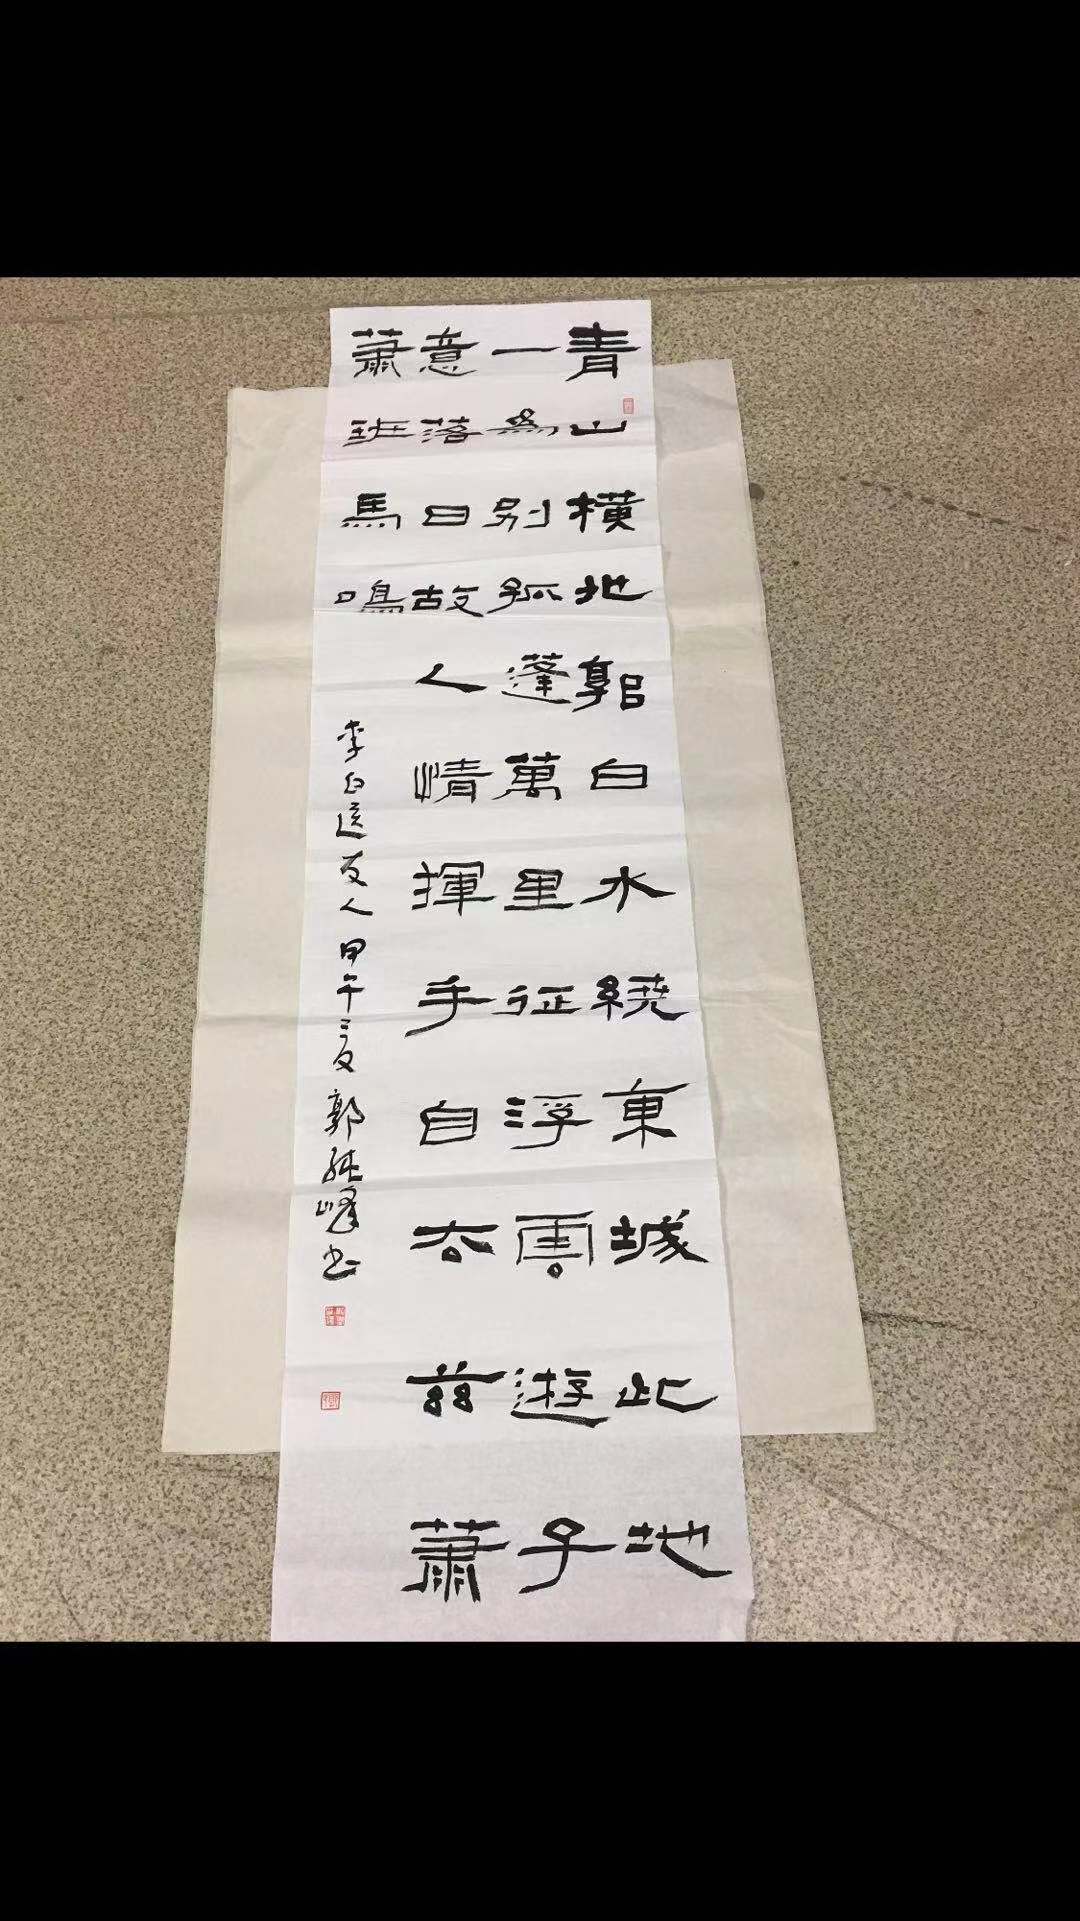 青山横地郭白水繞東城此地
一為別孤蓬萬里征浮雲遊子
意落日故人情揮手自去茲蕭
蕭班馬鳴
李白送友人甲午之夏郭純峰书